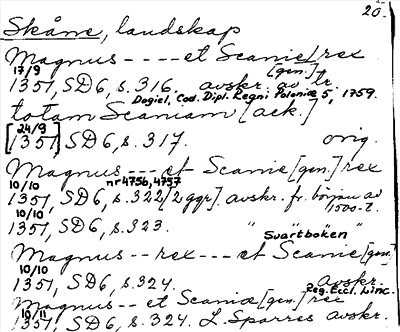 20.
Skåne, landskap
Magnus - - - - et Scanie [gen.] rex
17/9
1351, SD6, s. 316. avskr. av tr.
Dogiel, Cod. Dipl. Regni Poloniæ 5, 1759.
totam Scaniam [ack.]
[24/9
1351], SD6, s. 317. orig.
Magnus - - - et Scanie [gen.] rex
10/10 nr 4756, 4757
1351, SD6, s. 322 [2 ggr]. avskr. fr. början av 1500-t.
10/10
1351, SD6, s. 323. " "Svartboken"
Magnus - - rex - - - et Scanie [gen.]
10/10
1351, SD6, s. 324. avskr. Reg. Eccl. Linc.
Magnus - - et Scaniæ [gen.] rex
10/11
1351, SD6, s. 324. L. Sparres avskr.